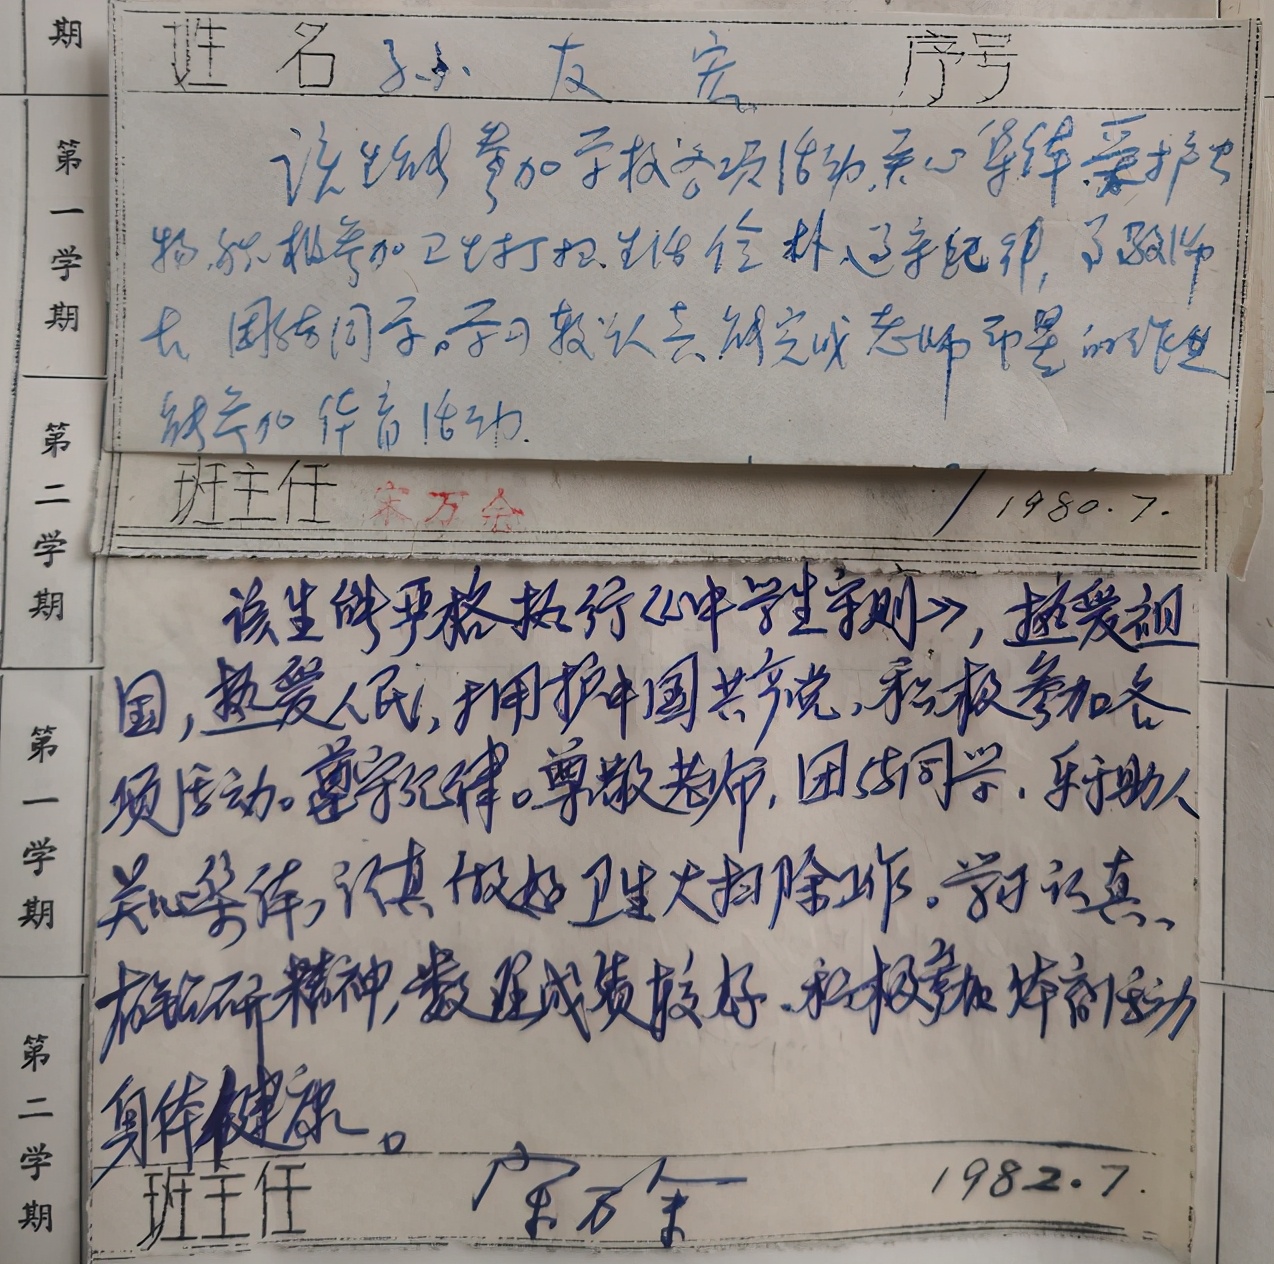 期
第一学期
第二学期
第一学期
第二学期
姓名 孙友宏 序号
该生能参加学校各项活动,关心集体,爱护公
物,能积极参加卫生打扫,生活俭朴,遵守纪律,尊敬师
长,团结同学。学习较认真,能完成老师布置的作业
能参加体育活动.
班主任 宋万会 1980.7.
该生能严格执行《中学生守则》,热爱祖
国,热爱人民,拥护中国共产党,积极参加各
项活动。遵守纪律。尊敬老师,团结同学,乐于助人
关心集体,认真做好卫生大扫除工作。学习认真、
有钻研精神,数理成绩较好、积极参加体育活动
身体健康。
班主任 宋万会 1982.7.